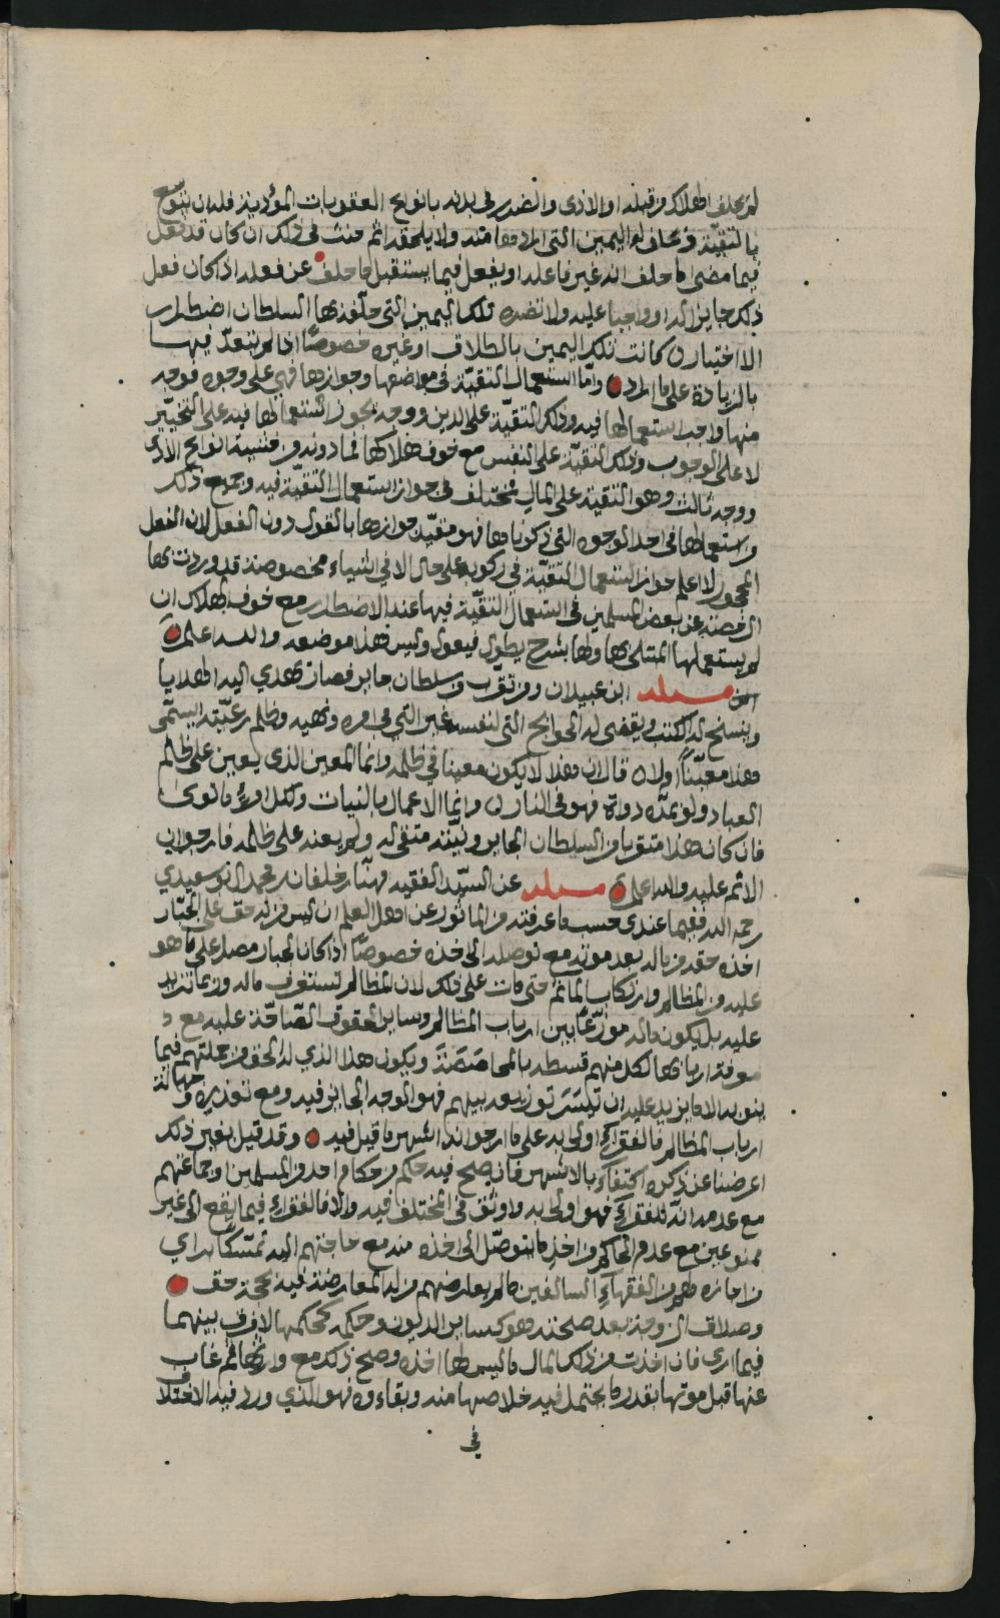 لم يحلف الهلاك من قبله او الاذى والضرر في بدنه بانواع العقوبات المؤدية فله ان يتوسع
بالتقيّة ويحلف له اليمين التي ارادها منه ولا يلحقه اثم حنث في ذلك ان كان قد فعل
فيما مضى ما حلف انه غير فاعله او يفعل فيما يستقبل ما حلف عن فعله اذا كان فعل
ذلك جايزا له او واجبا عليه ولا تضره تلك اليمين التي حلّفه بها السلطان اضطرارا
لا اختيارا كانت تلك اليمين بالطلاق او غيره خصوصًا اذا لم يتعدّ فيها
بالزيادة على ما اراد وامّا استعمال التقيّة في مواضعها وجوازها فهي على وجوه فوجه
منها واجب استعمالها فيه وذلك التقيّة على الدين ووجه يجوز استعمالها فيه على التخيّر
لا على الوجوب وذلك التقيّة على النفس مع خوف هلاكها فما دونه من خشية انواع الاذى
ووجه ثالث وهو التقية على المال مختلف في جواز استعمال التقيّة فيه وجميع ذلك
واستعمالها في احد الوجوه التي ذكرناها فهو مقيّد جوازها بالقول دون الفعل لان الفعل
المحجور لا اعلم جواز استعمال التقيّة في ركوبه على حال الا في اشياء مخصوصة قد وردت بها
الرخصة عن بعض المسلمين في استعمال التقيّة فيها عند الاضطرار مع خوف الهلاك ان
لم يستعملها المبتلى بها ولها شرح يطول فيعول وليس هذا موضعه والله اعلم
مسئلة ابن عبيدان ومن تقرّب من سلطان جاير فصار يهدي اليه الهدايا
وينسخ له الكتب ويقضى له الحوايج التي لنفسه غير التي في امره ونهيه وظلم رعيّته ايسمّى
هذا معينًا ام لا قال ان هذا لا يكون معينا في ظلمه وانما المعين الذي يعين على ظلم
العباد ولو بمدّه دواة فهو في النار وانما الاعمال بالنيات ولكل امرئ ما نوى
فان كان هذا متقربا من السلطان الجاير ونيّته متقي له ولم يعنه على ظلمه فارجو ان لا
اثم عليه والله اعلم مسئلة عن السيّد الفقيه مهنّا بن خلفان بن محمد البوسعيدي
رحمه الله ففيما عندي حسب ما عرفته من المأثور عن اهل العلم ان ليس لمن له حق على الجبّار
اخذه حقه من ماله بعد موته مع توصله الى اخذه خصوصًا اذا كان الجبار مصر على ما هو
عليه من المظالم وارتكاب المآثم حتى مات على ذلك لان المظالم تستغرق ماله وربما تزيد
عليه بل يكون ماله موزّعًا بين ارباب المظالم وساير الحقوق المضافة عليه مع
معرفة اربابها لكل منهم قسطه بالمحاصصة ويكون هذا الذي له الحق من جملتهم فيما
ينوبه لا ما يزيد عليه ان تيسّر توزيعه بينهم فهو الوجه الجايز فيه ومع تعذره وجهالة
ارباب المظالم فالفقراء اولى به على ما ارجو انه اشهر ما قيل فيه وقد قيل بغير ذلك
اعرضنا عن ذكره اكتفاءً بالاشهر فان صح فيه حكم من حكام احد من المسلمين او جماعتهم
مع عدمه انّه للفقراء فهو اولى به واوثق في المختلف فيه والا فالفقراء فيما يقع الى غير
ممنوعين مع عدم الحاكم من اخذ ما يتوصّل الى اخذه منه مع حاجتهم اليه تمسّكًا براي
من اجازه لهم من الفقهاء السالفين ما لم يعارضهم من له المعارضة فيه بحجة حق
وصداق الزوجة بعد صحته هو كساير الديون وحكمه كحكمها لا فرق بينهما
فيما ارى فان اخذت من ذلك المال ما ليس لها اخذه وصح ذلك مع وارثها ثم غاب
عنها قبل موتها بقدر ما يحتمل فيه خلاصها منه وبقاءوه فهو الذي ورد فيه الاختلاف
في